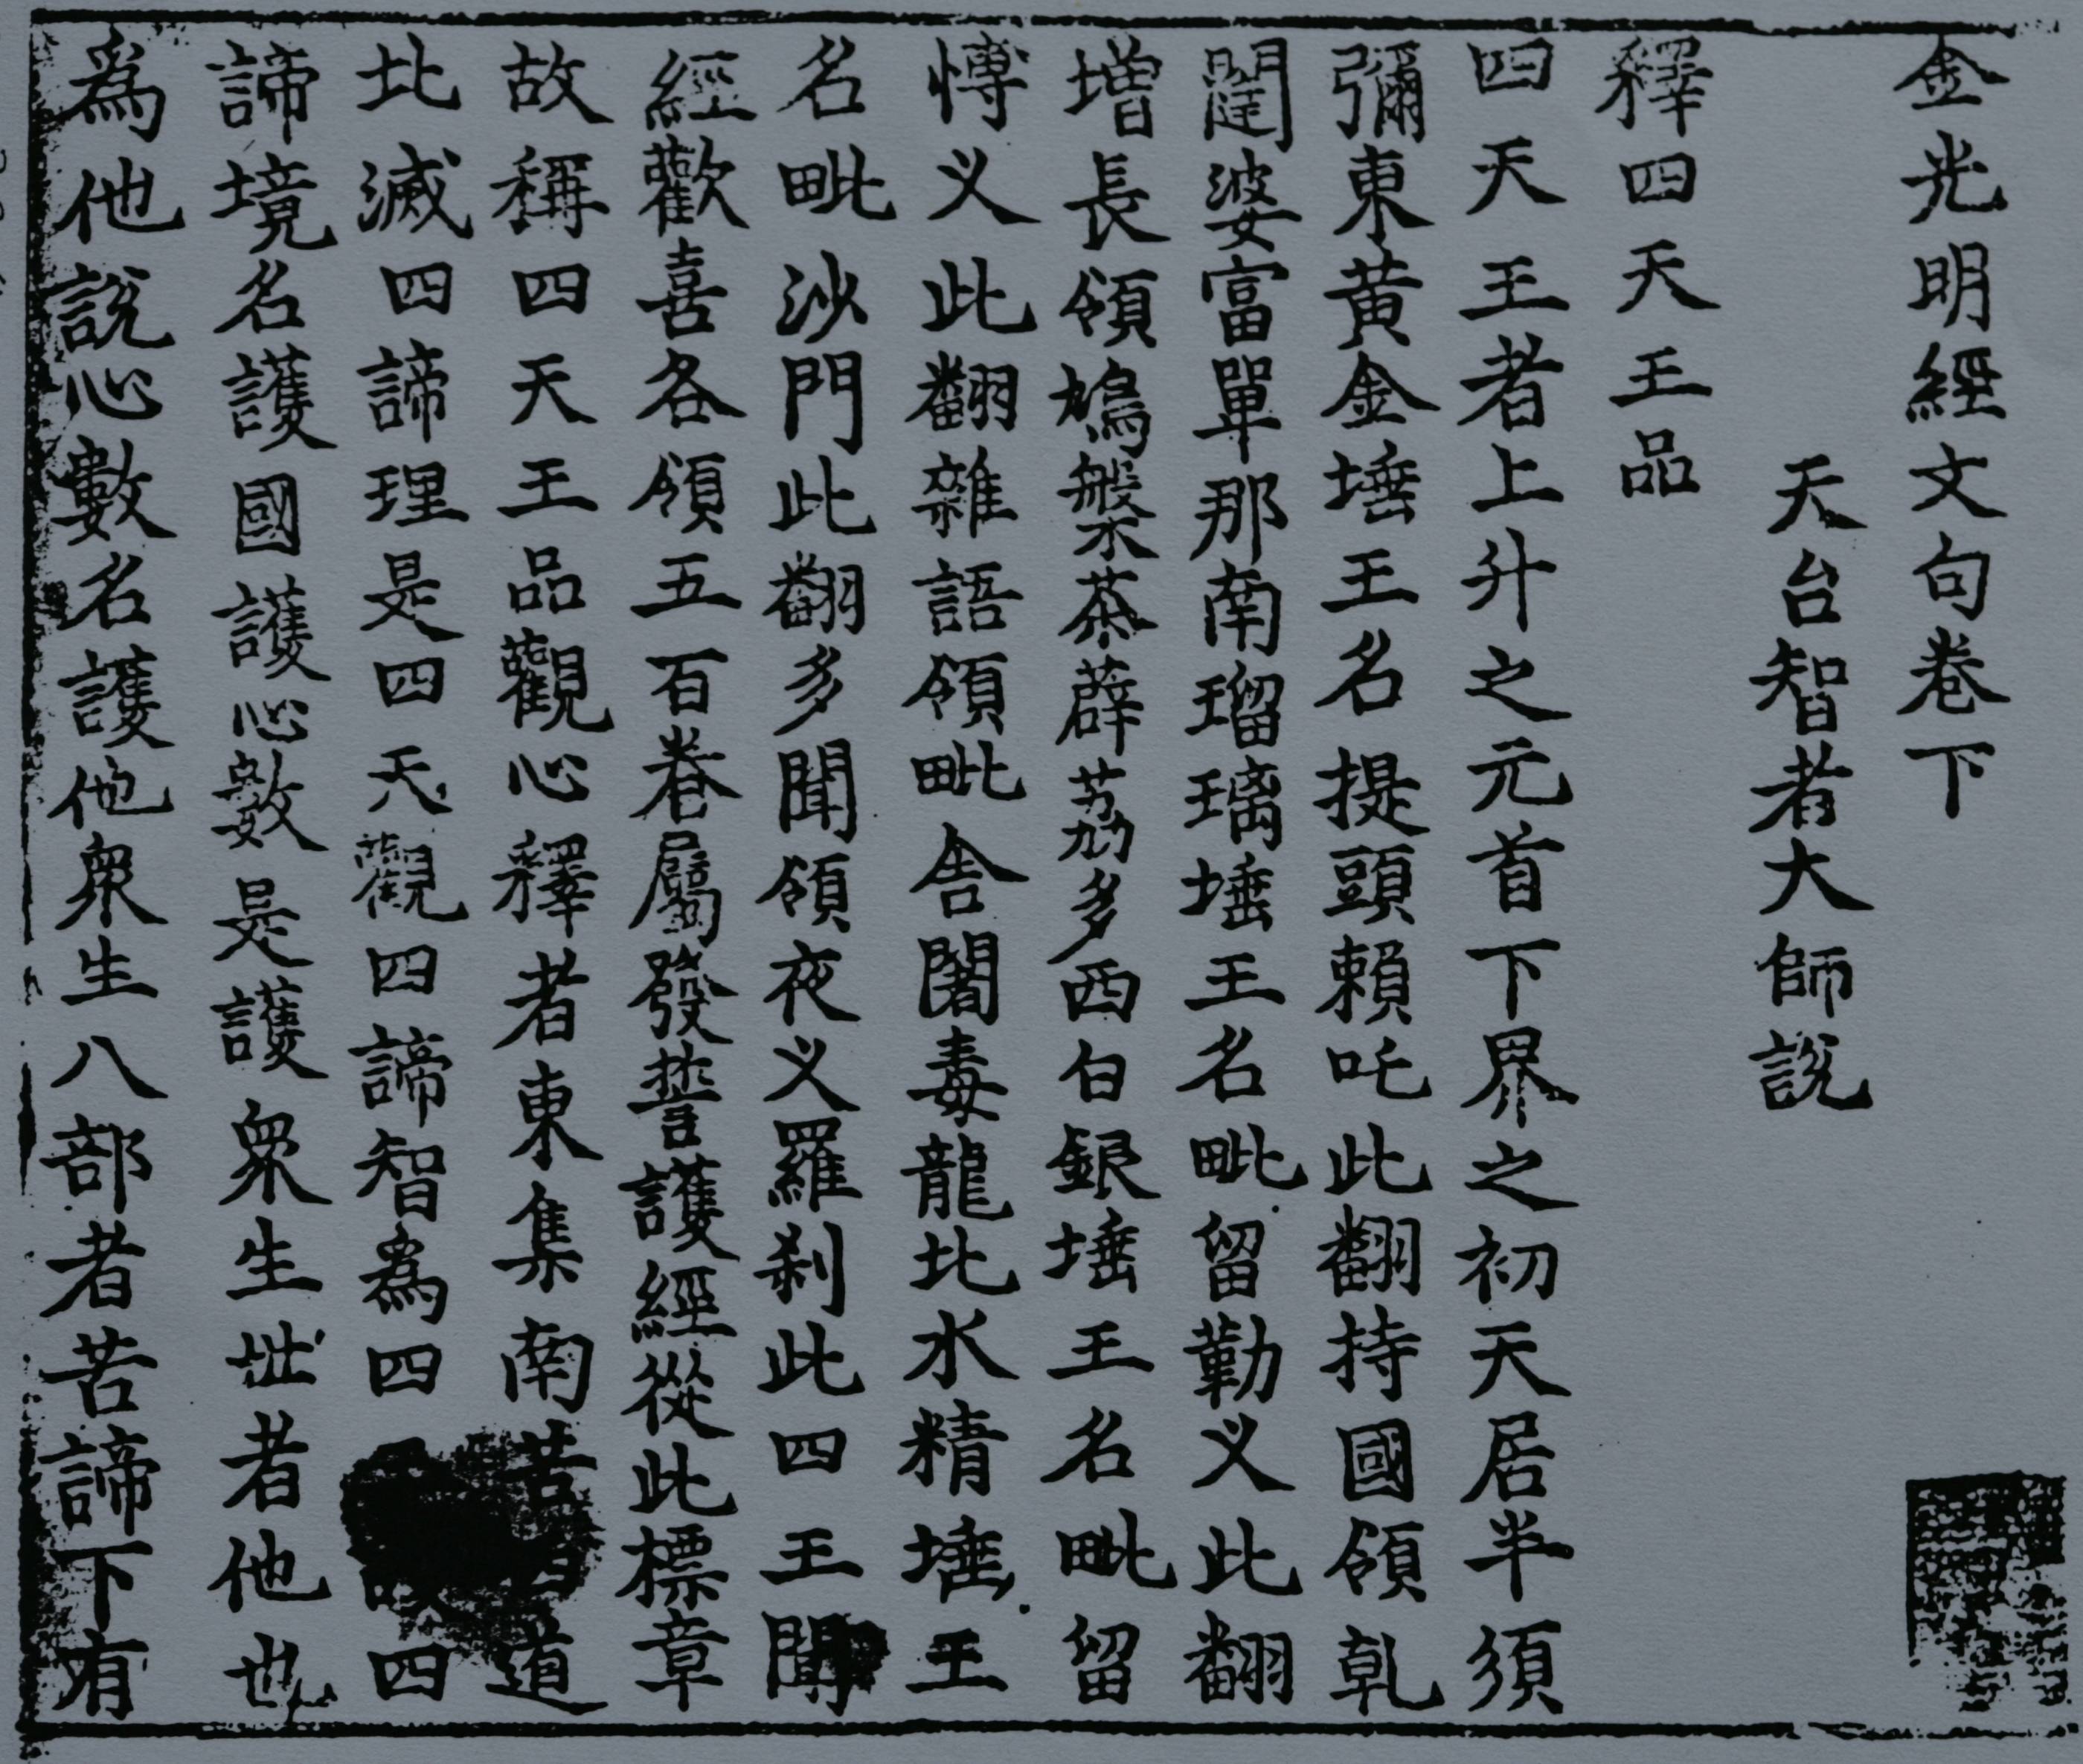 金光明經文句卷下
天台智者大師說
釋四天王品
四天王者上升之元首下界之初天居半須
彌東黃金埵王名提頭賴吒此翻持國領乹
闥婆富單那南瑠璃埵王名毗留勤义此翻
增長領鳩槃茶薜荔多西白銀埵王名毗留
愽义此翻雜語領毗舎闍毒龍北水精埵王
名毗沙門此翻多聞領夜义羅刹此四王聞
經歡喜各領五百眷屬發誓護經從此標章
故稱四天王品觀心釋者東集南苦道
北滅四諦理是四天觀四諦智為四四
諦境名護國護心數是護眾生㘴者他也
為他說心數名護他眾生八部者苦諦下有